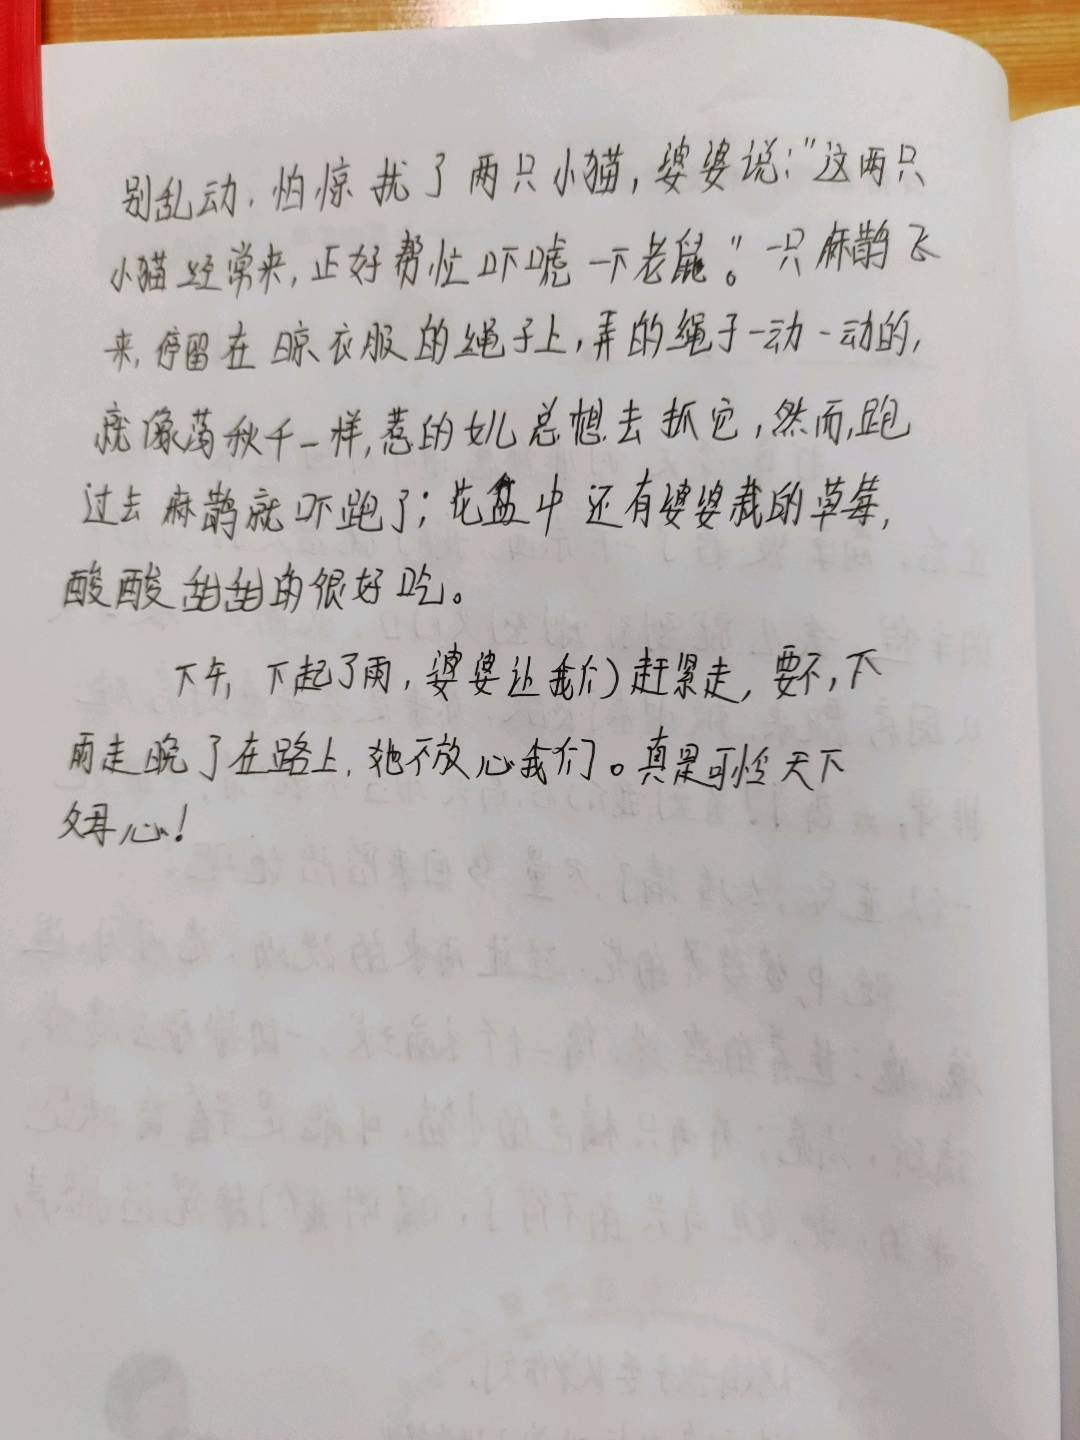 别乱动.怕惊扰了两只小猫,婆婆说:"这两只
小猫经常来,正好帮忙吓唬一下老鼠。"一只麻鹊飞
来,停留在晾衣服的绳子上,弄的绳子一动一动的,
就像荡秋千一样,惹的女儿总想去抓它,然而,跑
过去麻鹊就吓跑了;花盆中还有婆婆栽的草莓,
酸酸甜甜的很好吃。
下午,下起了雨,婆婆让我们赶紧走,要不,下
雨走晚了在路上,她不放心我们。真是可怜天下
父母心!